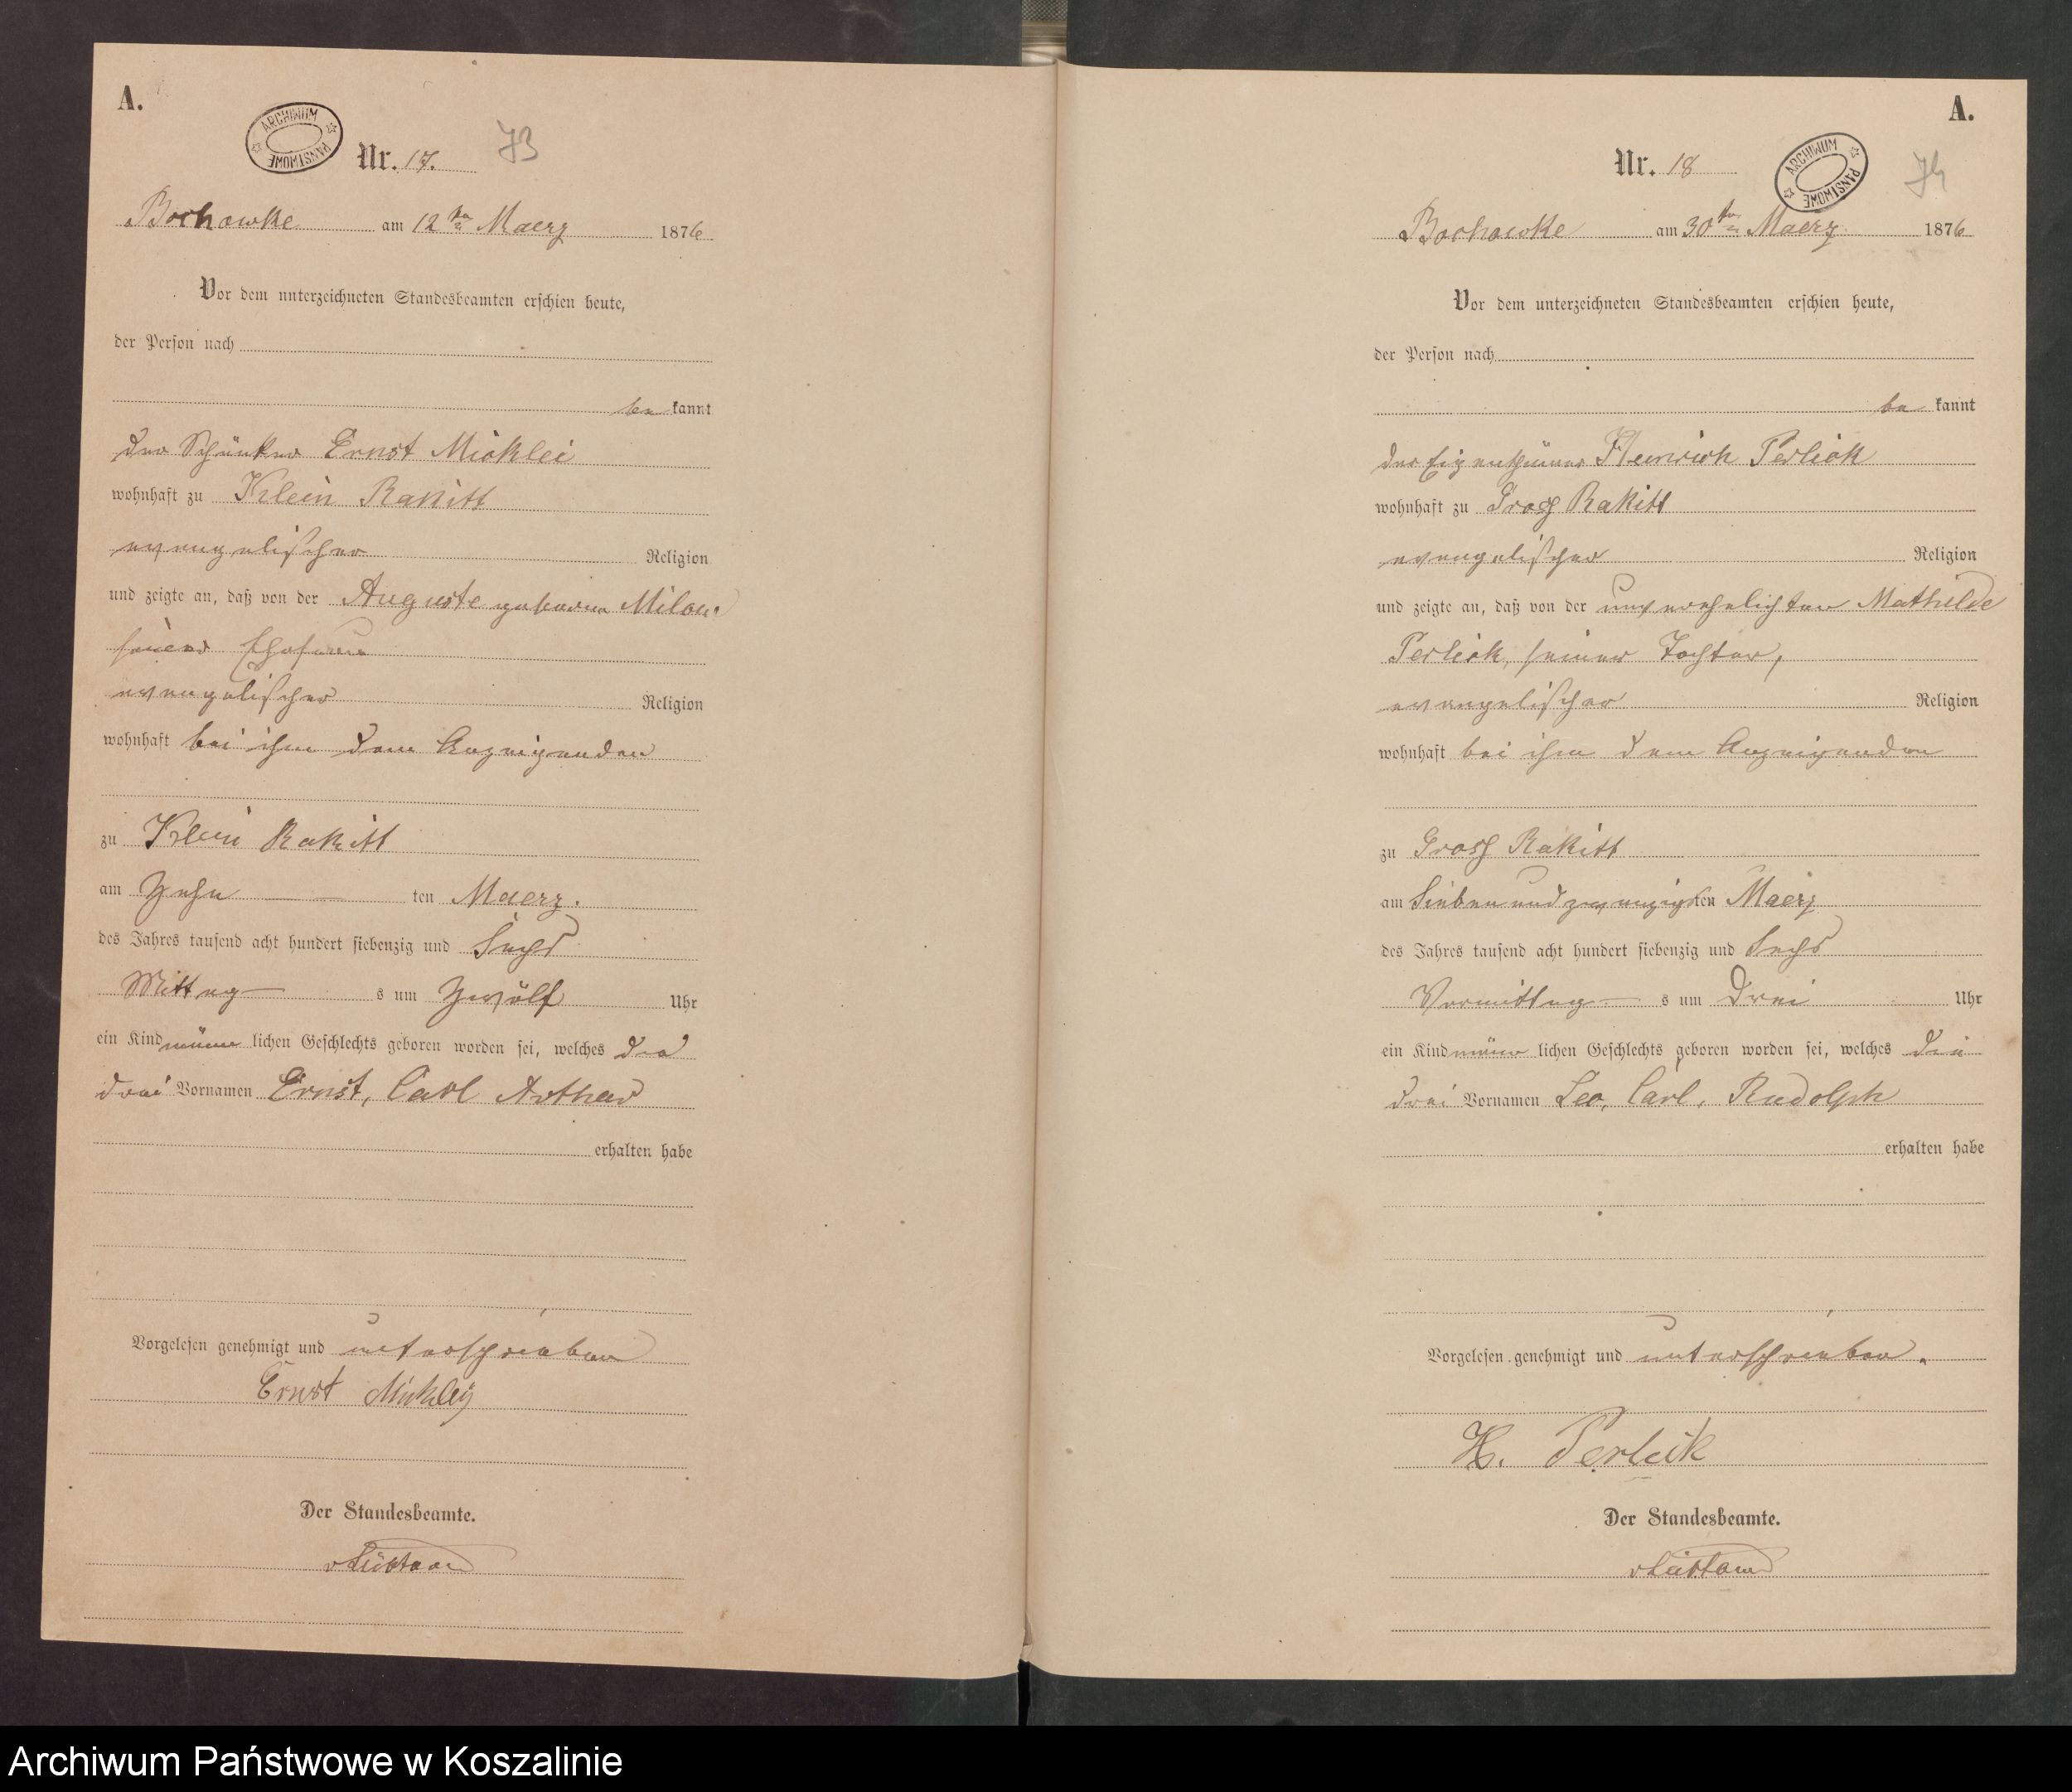 A.
ARCHIWUM PAŃSTWOWE
Nr. 17.
73
Bochowke am 12ten Maerz 1876
Vor dem unterzeichneten Standesbeamten erschien heute,
der Person nach
be kannt
der Schänker Ernst Micklei
wohnhaft zu Klein Rakitt
evangelischer Religion
und zeigte an, daß von der Auguste geborne
seiner Ehefrau
evangelischer Religion
wohnhaft bei ihm dem Anzeigenden
zu Klein Rakitt
am Zehn ten Maerz.
des Jahres tausend acht hundert siebenzig und Sechs
Mittag s um Zwölf Uhr
ein Kind männ lichen Geschlechts geboren worden sei, welches die
drei Vornamen Ernst, Carl Arthur
erhalten habe
Vorgelesen genehmigt und unterschrieben
Ernst Mickley
Der Standesbeamte.
A.
Nr. 18
ARCHIWUM PAŃSTWOWE
74
Bochowke am 30ten Maerz 1876
Vor dem unterzeichneten Standesbeamten erschien heute,
der Person nach
be kannt
der Eigenthümer Heinrich Perlick
wohnhaft zu Gross Rakitt
evangelischer Religion
und zeigte an, daß von der unverehelichten Mathilde
Perlick, seiner Tochter,
evangelischer Religion
wohnhaft bei ihm dem Anzeigenden
zu Gross Rakitt
am Siebenundzwanzigsten Maerz
des Jahres tausend acht hundert siebenzig und Sechs
Vormittag s um Drei Uhr
ein Kind männ lichen Geschlechts geboren worden sei, welches die
drei Vornamen Leo, Carl, Rudolph
erhalten habe
Vorgelesen genehmigt und unterschrieben.
H. Perlick
Der Standesbeamte.
Archiwum Państwowe w Koszalinie